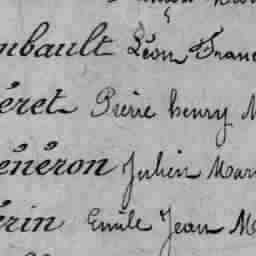 mbault Léon Franc
éret Pierre henry M
énéron Julien Mar
érin Emile Jean M